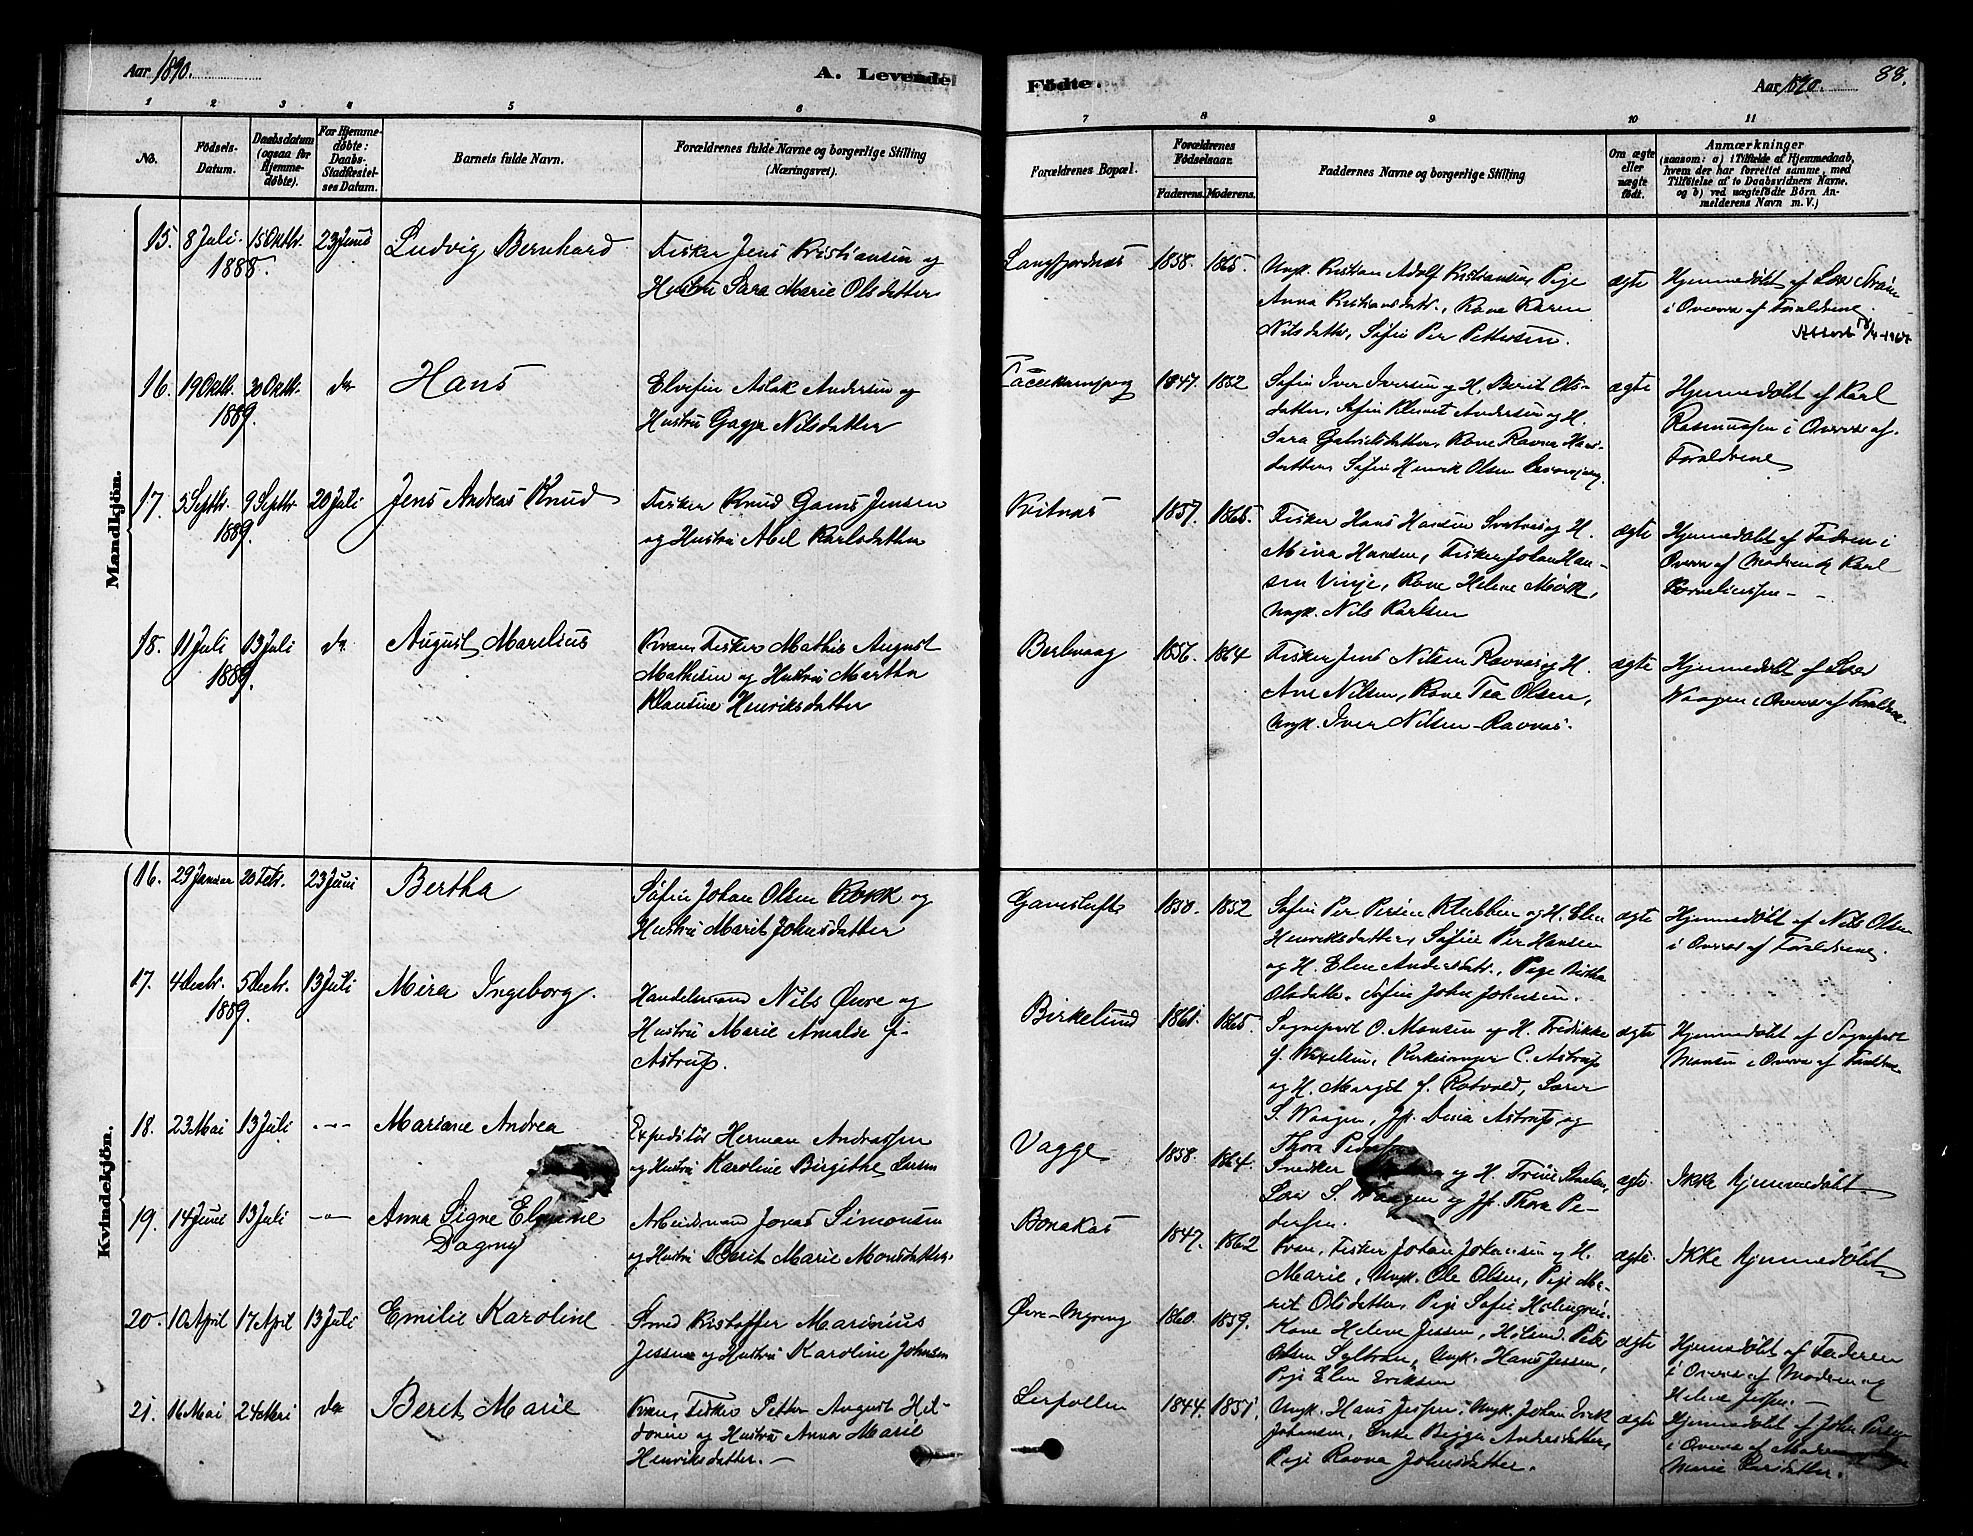 Aar 1890.
A. Levende
Födte.
Aar 1890.
88.
1 2 3 4 5 6 7 8 9 10 11
No.
Födsels-Datum.
Daabsdatum (ogsaa for Hjemmedöbte).
For Hjemmedöbte: Daabs-Stadfæstelses Datum.
Barnets fulde Navn.
Forældrenes fulde Navne og borgerlige Stilling (Næringsvei).
Forældrenes Bopæl.
Forældrenes Födselsaar.
Faderens. Moderens.
Faddernes Navne og borgerlige Stilling
Om ægte eller uægte födt.
Anmærkninger
(saasom: a) i Tilfælde af Hjemmedaab, hvem der har forrettet samme, med Tilföielse af to Daabsvidners Navne. og b) ved uægtefödte Börn Anmelderens Navn m. V.)
Mandkjön.
15. 8 Juli 1888. 15 Oktbr. 23 Juni Ludvig Bernhard
Fisker Jens Kristiansen og
Hustru Sara Marie Olsdatter
Langfjordnæs 1858. 1865.
Ungk. Kristian Adolf Kristiansen, Pige
Anna Kristiansdatr., Kone Karen
Nilsdatter, Søfin Per Pettersen.
ægte
Hjemmedøbt af Lær Strøm
i Overvær af Forældrene.
16. 19 Oktbr. 1889. 30 Oktbr. do Hans
Elvefin Aslak Andersen og
Hustru Gagga Nilsdatter
1847. 1852
Søfin Iver Iversen og H. Berit Ols-
datter, Søfin Klemet Andersen og H.
Sara Gabrielsdatter, Kone Ravna Hans-
datter, Søfin Henrik Olsen
ægte
Hjemmedøbt af Karl
Rasmussen i Overvær af
Forældrene
17. 5 Septbr. 1889. 9 Septbr. 20 Juli Jens Andreas Knud
Fisker Knud Gams Jensen
og Hustru Abel Karlsdatter
Kvitnæs 1857. 1865.
Fisker Hans Hansen og H.
Mina Hansen, Fisker Johan Han-
sen Vinje, Kone Helene Mørk,
Ungk. Nils Karlsen
ægte
Hjemmedøbt af Faderen i
Overvær af Moderen og Karl
Korneliussen
18. 11 Juli 1889. 13 Juli do August Marelius
Kvæn Fisker Mathis August
Mathisen og Hustru Martha
Klausine Henriksdatter
Berlevaag 1856. 1864
Fisker Jens Nilsen Ravnæs og H.
Ane Nilsen, Kone Tea Olsen,
Ungk. Iver Nilsen Ravnæs.
ægte
Hjemmedøbt af Lær
Waagen i Overvær af Forældrene
Kvindekjön.
16. 29 Januar 20 Febr. 23 Juni Bertha
Søfin Johan Olsen Kokk og
Hustru Marit Johnsdatter
Gamslufte 1850. 1852
Søfin Per Persen Klubbien og H. Elen
Henriksdatter, Søfin Per Hansen
og H. Elen Andersdatr., Pige Birtha
Olsdatter, Søfin John Johnsen.
ægte
Hjemmedøbt af Nils Olsen
i Overvær af Forældrene
17. 4 Decbr. 1889. 5 Decbr. 13 Juli Mira Ingeborg.
Handelsmand Nils Øvre og
Hustru Marie Amalie f.
Astrup.
Birkelund 1861. 1865.
Sognepræst O. Hansen og H. Fredrikke
f. Wexelsen, Kirkesanger C. Astrup
og H. Margit f. Rotvold, Lærer
S. Waagen, Jfr. Dina Astrup og
Thora Pedersen
ægte
Hjemmedøbt af Sognepræst
Hansen i Overvær af Forældrene
18. 23 Mai 13 Juli -"- Mariane Andrea
Expeditør Herman Andreassen
og Hustru Karoline Birgithe Larsen
Vagge 1858. 1864
Snedker og H. Trine
Lær S. Waagen og Jfr. Thora Pe-
dersen.
ægte. Ikke hjemmedøbt.
19. 14 Juni 13 Juli -"- Anna Signe Elmine
Dagny
Arbeidsmand Jonas Simonsen
og Hustru Berit Marie Monsdatter.
Bonakas 1847. 1862
Kvæn, Fisker Johan Johansen og H.
Marie, Ungk. Ole Olsen, Pige Ma-
rit Olsdatter, Pige Sofie Holmgren.
ægte. Ikke hjemmedøbt
20. 10 April 17 April 13 Juli Emilie Karoline
Smed Kristoffer Marinius
Jessen og Hustru Karoline Johnsen
1860. 1859.
Kone Helene Jessen, Peter
Olsen Sultran, Ungk. Hans Jessen,
Pige Elen Eriksen
ægte
Hjemmedøbt af Faderen
i Overvær af Moderen og
Helene Jessen.
21. 16 Mai 24 Mai do Beret Marie
Kvæn Fisker Petter August Hel-
donen og Hustru Anna Marie
Henriksdatter.
Leirpollen 1844. 1851.
Ungk. Hans Jessen, Ungk. Johan Erik
Johansen, Enke Bigga Andersdatter,
Pige Ravna Johnsdatter.
ægte
Hjemmedøbt af John Persen
i Overvær af Moderen og
Marie Larsdatter.